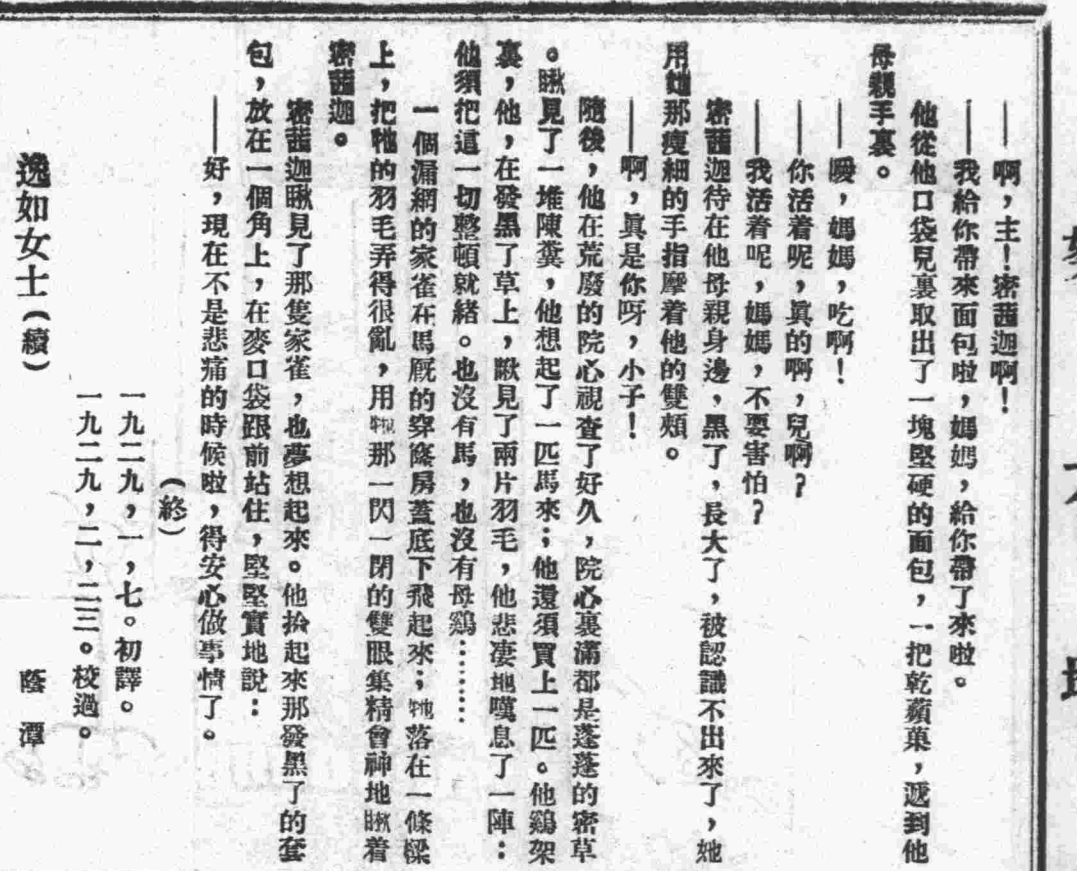 ——啊，主！密茜迦啊！
——我給你帶來面包啦，媽媽，給你帶了來啦。
他從他口袋兒裏取出了一塊堅硬的面包，一把乾蘋菓，遞到他
母親手裏。
——噯，媽媽，吃啊！
——你活着呢，眞的啊，兒啊？
——我活着呢，媽媽，不要害怕？
密茜迦待在他母親身邊，黑了，長大了，被認識不出來了，她
用她那瘦細的手指摩着他的雙頰。
——啊，眞是你呀，小子！
隨後，他在荒廢的院心視查了好久，院心裏滿都是蓬蓬的密草
。瞅見了一堆陳糞，他想起了一匹馬來；他還須買上一匹。他鷄架
裏，他，在發黑了草上，瞅見了兩片羽毛，他悲凄地嘆息了一陣：
他須把這一切整頓就緒。也沒有馬，也沒有母鷄………
一個漏網的家雀在馬厩的穿窿房蓋底下飛起來；牠落在一條樑
上，把牠的羽毛弄得很亂，用牠那一閃一閉的雙眼集精會神地瞅着
密茜迦。
密茜迦瞅見了那隻家雀，也夢想起來。他拾起來那發黑了的套
包，放在一個角上，在麥口袋跟前站住，堅堅實地說：
——好，現在不是悲痛的時候啦，得安心做事情了。
（終）
一九二九，一，七。初譯。
一九二九，二，二三。校過。
逸如女士（續） 蔭潭